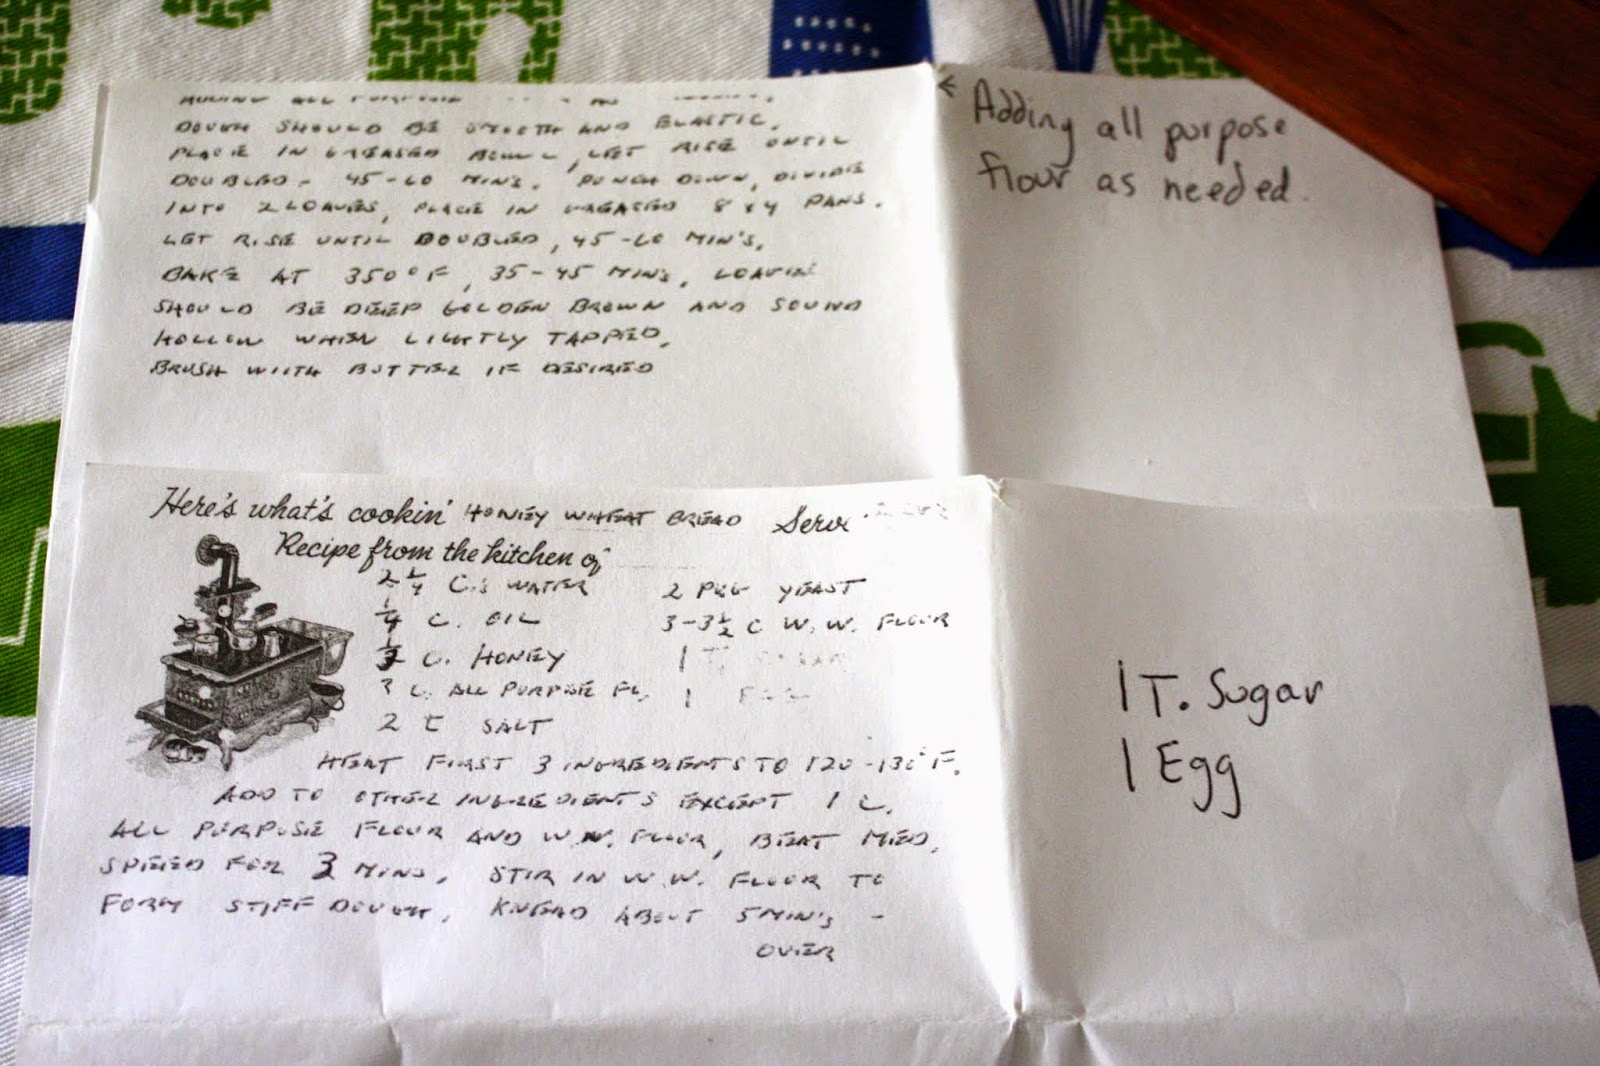 ADDING ALL PURPOSE
DOUGH SHOULD BE SMOOTH AND ELASTIC.
PLACE IN GREASED BOWL, LET RISE UNTIL
DOUBLED - 45-60 MIN'S. PUNCH DOWN, DIVIDE
INTO 2 LOAVES, PLACE IN GREASED 8 X 4 PANS.
LET RISE UNTIL DOUBLED, 45-60 MIN'S.
BAKE AT 350° F, 35-45 MINS, LOAVES
SHOULD BE DEEP GOLDEN BROWN AND SOUND
HOLLOW WHEN LIGHTLY TAPPED.
BRUSH WITH BUTTER IF DESIRED
← Adding all purpose
flour as needed.
Here's what's cookin' HONEY WHEAT BREAD
Recipe from the kitchen of
2 1/4 C.S WATER
1/4 C. OIL
C. HONEY
3 C. ALL PURPOSE FL.
2 t SALT
2 PKG YEAST
3-3 1/2 C W.W. FLOUR
1 T. SUGAR
1 EGG
HEAT FIRST 3 INGREDIENTS TO 120-130°F.
ADD TO OTHER INGREDIENTS EXCEPT 1 C.
ALL PURPOSE FLOUR AND W.W. FLOUR, BEAT MED.
SPEED FOR 3 MINS. STIR IN W.W. FLOUR TO
FORM STIFF DOUGH. KNEAD ABOUT 5 MIN'S -
OVER
1 T. Sugar
1 Egg